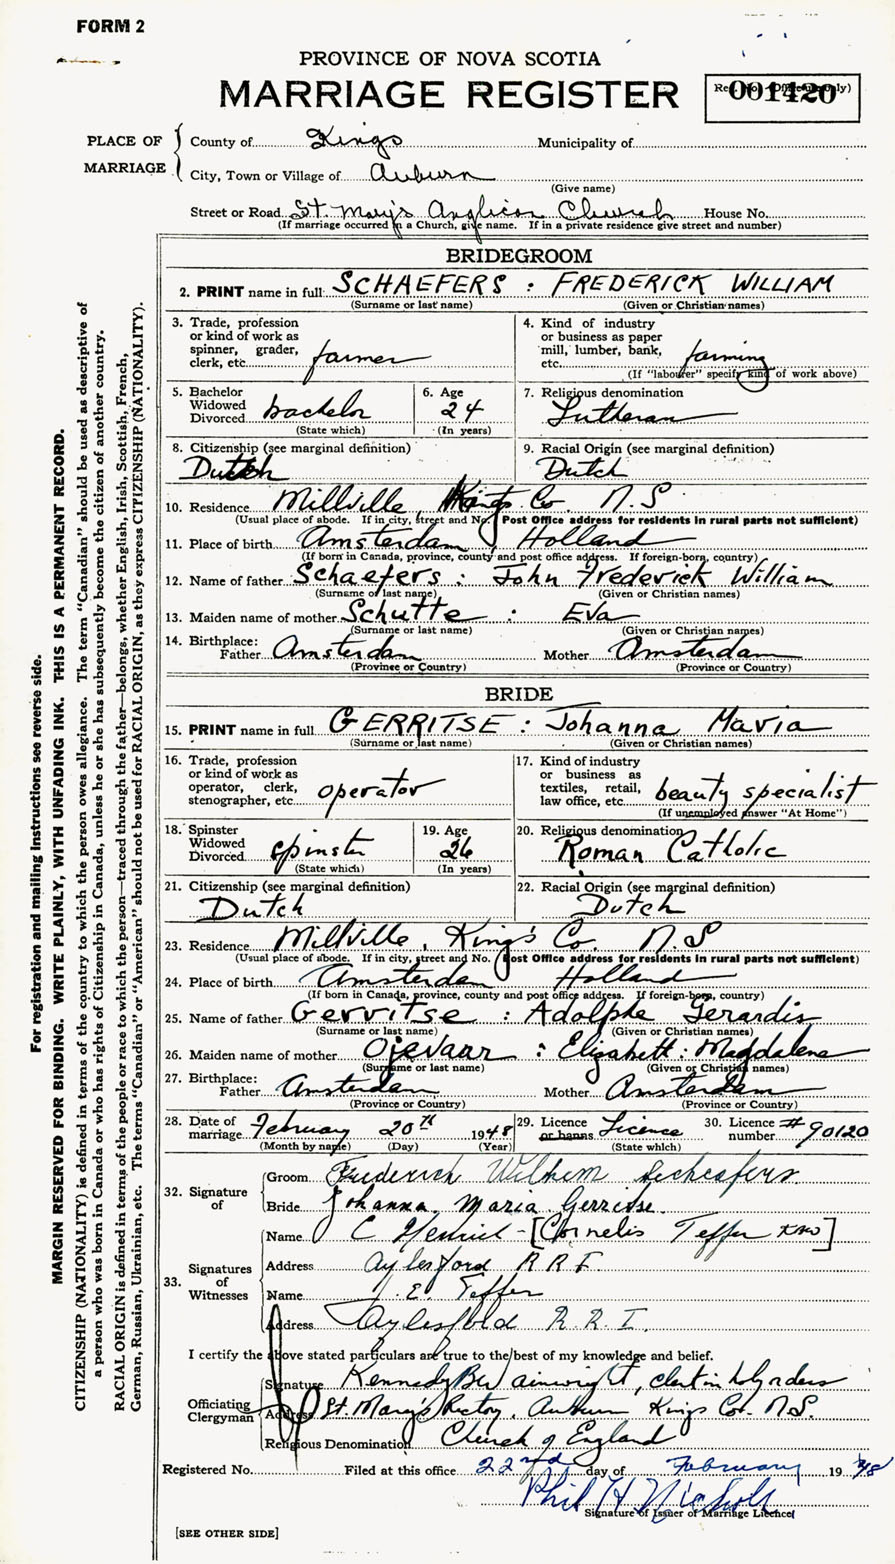 FORM 2
PROVINCE OF NOVA SCOTIA
MARRIAGE REGISTER
001420
PLACE OF MARRIAGE
County of Kings Municipality of
City, Town or Village of Auburn
(Give name)
Street or Road St. Mary's Anglican Church House No.
(If marriage occurred in a Church, give name. If in a private residence give street and number)
BRIDEGROOM
2. PRINT name in full SCHAEFERS : FREDERICK WILLIAM
(Surname or last name) (Given or Christian names)
3. Trade, profession or kind of work as spinner, grader, clerk, etc. farmer
4. Kind of industry or business as paper mill, lumber, bank, etc. farming
(If "labourer" specify kind of work above)
5. Bachelor Widowed Divorced bachelor
(State which)
6. Age 24
(In years)
7. Religious denomination
Lutheran
8. Citizenship (see marginal definition)
Dutch
9. Racial Origin (see marginal definition)
Dutch
10. Residence Millville, Kings Co. N.S
(Usual place of abode. If in city, street and No. Post Office address for residents in rural parts not sufficient)
11. Place of birth Amsterdam, Holland
(If born in Canada, province, county and post office address. If foreign-born, country)
12. Name of father Schaefers : John Frederick William
(Surname or last name) (Given or Christian names)
13. Maiden name of mother Schutte : Eva
(Surname or last name) (Given or Christian names)
14. Birthplace: Father Amsterdam Mother Amsterdam
(Province or Country) (Province or Country)
BRIDE
15. PRINT name in full GERRITSE : Johanna Maria
(Surname or last name) (Given or Christian names)
16. Trade, profession or kind of work as operator, clerk, stenographer, etc. operator
17. Kind of industry or business as textiles, retail, law office, etc. beauty specialist
(If unemployed answer "At Home")
18. Spinster Widowed Divorced spinster
(State which)
19. Age 26
(In years)
20. Religious denomination
Roman Catholic
21. Citizenship (see marginal definition)
Dutch
22. Racial Origin (see marginal definition)
Dutch
23. Residence Millville, King's Co. N.S
(Usual place of abode. If in city, street and No. Post Office address for residents in rural parts not sufficient)
24. Place of birth Amsterdam Holland
(If born in Canada, province, county and post office address. If foreign-born, country)
25. Name of father Gerritse : Adolphe Gerardis
(Surname or last name) (Given or Christian names)
26. Maiden name of mother Ojevaar : Elizabett : Magdalena
(Surname or last name) (Given or Christian names)
27. Birthplace: Father Amsterdam Mother Amsterdam
(Province or Country) (Province or Country)
28. Date of marriage February 20th 1948
(Month by name) (Day) (Year)
29. Licence or banns Licence
(State which)
30. Licence number #90120
32. Signature of
Groom Frederich Wilhem Schaefers
Bride Johanna Maria Gerritse.
33. Signatures of Witnesses
Name C [Cornelis Teffer KBW]
Address Aylesford R R I.
Name J. E. Teffer
Address Aylesford R.R.I.
I certify the above stated particulars are true to the best of my knowledge and belief.
Officiating Clergyman
Signature Kennedy B Wainwright, clerk in holy orders
Address St. Mary's Rectory, Auburn Kings Co. N.S.
Religious Denomination Church of England
Registered No. Filed at this office 22nd day of February 1948
Phil H Nichols
Signature of Issuer of Marriage Licence
[SEE OTHER SIDE]
For registration and mailing instructions see reverse side.
MARGIN RESERVED FOR BINDING. WRITE PLAINLY, WITH UNFADING INK. THIS IS A PERMANENT RECORD.
CITIZENSHIP (NATIONALITY) is defined in terms of the country to which the person owes allegiance. The term "Canadian" should be used as descriptive of
a person who was born in Canada or who has rights of Citizenship in Canada, unless he or she has subsequently become the citizen of another country.
RACIAL ORIGIN is defined in terms of the people or race to which the person—traced through the father—belongs, whether English, Irish, Scottish, French,
German, Russian, Ukrainian, etc. The terms "Canadian" or "American" should not be used for RACIAL ORIGIN, as they express CITIZENSHIP (NATIONALITY).